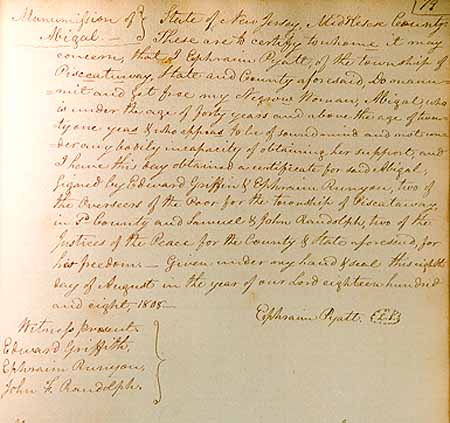 Manumission of } State of New Jersey, Middlesex County
Abigal. — } These are to certify to whome it may
concern, that I Ephraim Pyatt, of the township of
Piscataway, State and County aforesaid, Do manu-
-mit and set free my Negrow Woman, Abigal, who
is under the age of forty years and above the age of twen-
ty one years & who appears to be of sound mind and not un-
der any bodily incapacity of obtaining her support, and
I have this day obtained a certificate for said Abigal,
signed by Edward Griffin & Ephraim Runyon, two of
the Overseers of the Poor for the township of Piscataway,
in Sd. County and Samuel & John Randolph, two of the
Justices of the Peace for the County & State aforesaid, for
her freedom. — Given under my hand & seal this eighth
day of August in the year of our Lord eighteen hundred
and eight, 1808 —
Ephraim Pyatt.
Witness present
Edward Griffith,
Ephraim Runyon,
John F. Randolph. }